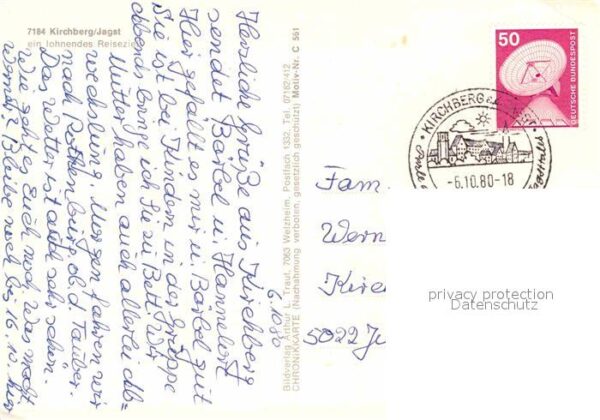 7184 Kirchberg/Jagst
ein lohnendes Reiseziel
6.10.80
Herzliche Grüße aus Kirchberg
sendet Bärbel u. Hannelore
Hier gefällt es mir u. Bärbel gut
Sie ist bei Kindern in der Gruppe
abends bringe ich Sie zu Bett. Wir
Mütter haben auch allerlei Ab=
wechslung. Morgen fahren wir
nach Rothenburg o. d. Tauber.
Das Wetter ist auch sehr schön.
Wie geht es Euch noch, was macht
Werner? Bleibe noch bis 16.10. hier
Bildverlag Arthur L. Traut, 7063 Welzheim, Postfach 1332, Tel. 07182/412
CHRONIKKARTE (Nachahmung verboten, gesetzlich geschützt) Motiv-Nr. C 561
50
DEUTSCHE BUNDESPOST
KIRCHBERG
-6.10.80-18
Fam.
Wern
Kirc
5022 Ju
privacy protection
Datenschutz